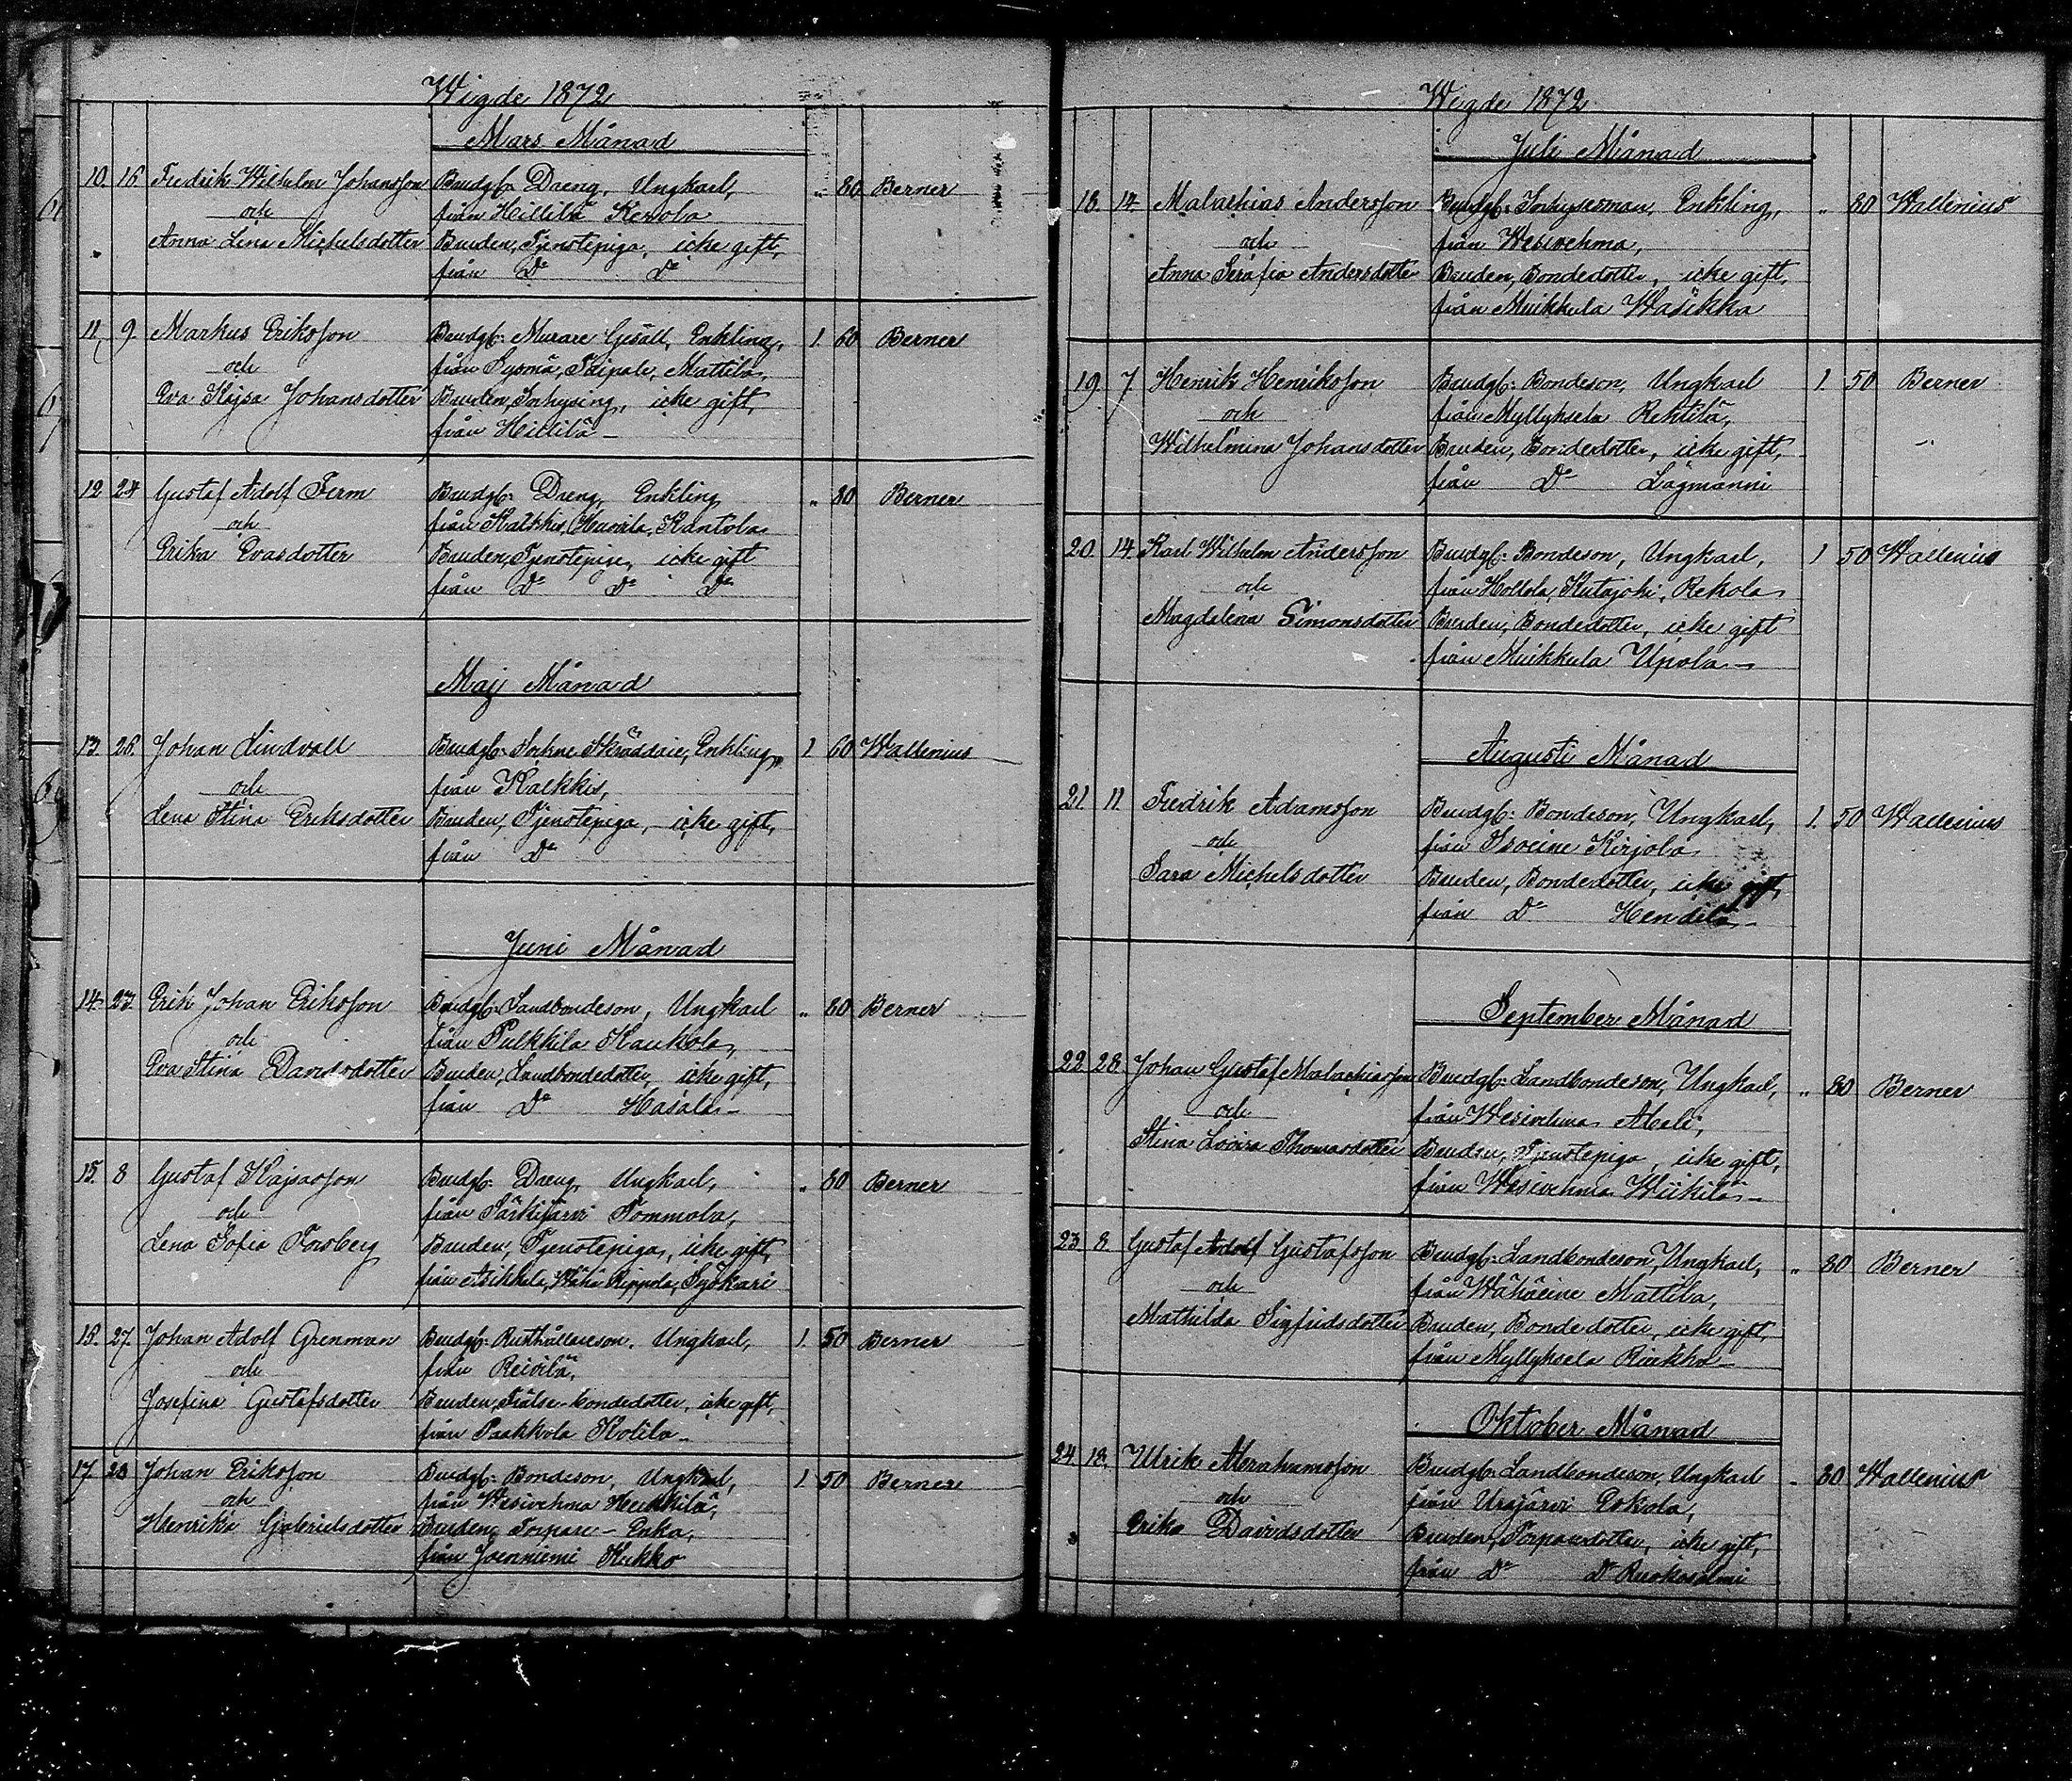 Wigde 1872
Mars Månad
10. 16. Fredrik Wilhelm Johansson Brudg: Dreng, Ungkarl, „ 80 Berner
och från Hillilä Kerola
Anna Lena Michelsdotter Bruden, Tjenstepiga, icke gift,
från Do Do
11. 9. Markus Eriksson Brudg: Murare Gesäll, Enkling, 1 60 Berner
och från Sysmä, Paipale, Mattila,
Eva Kajsa Johansdotter Bruden, Inhysing, icke gift,
från Hillilä
12 24 Gustaf Adolf Ferm Brudg: Dreng, Enkling „ 80 Berner
och från Kalkkis, Huovila, Kantola
Erika Evasdotter Bruden, Tjenstepiga, icke gift
från Do Do Do
Maj Månad
13. 26. Johan Lindvall Brudg: Sockne Skräddare, Enkling, 1 60 Wallenius
och från Kalkkis,
Lena Stina Eriksdotter Bruden, Tjenstepiga, icke gift,
från Do
Juni Månad
14. 23. Erik Johan Eriksson Brudg: Landbondeson, Ungkarl „ 80 Berner
och från Pulkkila Kaukola,
Eva Stina Davidsdotter Bruden, Landbondedotter, icke gift,
från Do Hasala
15. 8 Gustaf Kajsasson Brudg: Dreng, Ungkarl, „ 80 Berner
och från Särkijärvi Tommola,
Lena Sofia Forsberg Bruden, Tjenstepiga, icke gift,
från Asikkala, Wähä Rippola, Syökari
16. 27. Johan Adolf Grenman Brudg: Rusthållareson, Ungkarl, 1. 50 Berner
och från Reivilä,
Josefina Gustafsdotter Bruden, Frälse-bondedotter, icke gift,
från Paakkola Kotila
17. 23 Johan Eriksson Brudg: Bondeson, Ungkarl, 1 50 Berner
och från Wesivehma Heikkilä,
Henrika Gabrielsdotter Bruden, Torpare-Enka,
från Joenniemi Kukko
Wigde 1872
Juli Månad
18. 14. Malachias Andersson Brudg: Inhyserman, Enkling, „ 80 Wallenius
och från Wesivehma,
Anna Serafia Andersdotter Bruden, Bondedotter, icke gift,
från Muikkula Wasikka
19. 7. Henrik Henriksson Brudg: Bondeson, Ungkarl 1. 50 Berner
och från Myllykselä Rehtilä,
Wilhelmina Johansdotter Bruden, Bondedotter, icke gift,
från Do Lagmanni
20. 14. Karl Wilhelm Andersson Brudg: Bondeson, Ungkarl, 1 50 Wallenius
och från Hollola, Kutajoki, Rekola
Magdalena Simonsdotter Bruden, Bondedotter, icke gift
från Muikkula Upola
Augusti Månad
21 11 Fredrik Adamsson Brudg: Bondeson, Ungkarl, 1. 50 Wallenius
och från Isoeine Kirjola
Sara Michelsdotter Bruden, Bondedotter, icke gift,
från Do Hendilä
September Månad
22. 28. Johan Gustaf Malachiasson Brudg: Landbondeson, Ungkarl, „ 80 Berner
och från Wesivehma Alali,
Stina Lovisa Thomasdotter Bruden, Tjenstepiga, icke gift,
från Wesivehma Wiikilä
23. 8. Gustaf Adolf Gustafsson Brudg: Landbondeson, Ungkarl, „ 80 Berner
och från Wähäeine Mattila,
Mathilda Sigfridsdotter Bruden, Bondedotter, icke gift,
från Myllykselä Riekko
Oktober Månad
24 18. Ulrik Abrahamsson Brudg: Landbondeson, Ungkarl „ 80 Wallenius
och från Urajärvi Eskola,
Erika Davidsdotter Bruden, Torparedotter, icke gift,
från Do Do Ruokosalmi